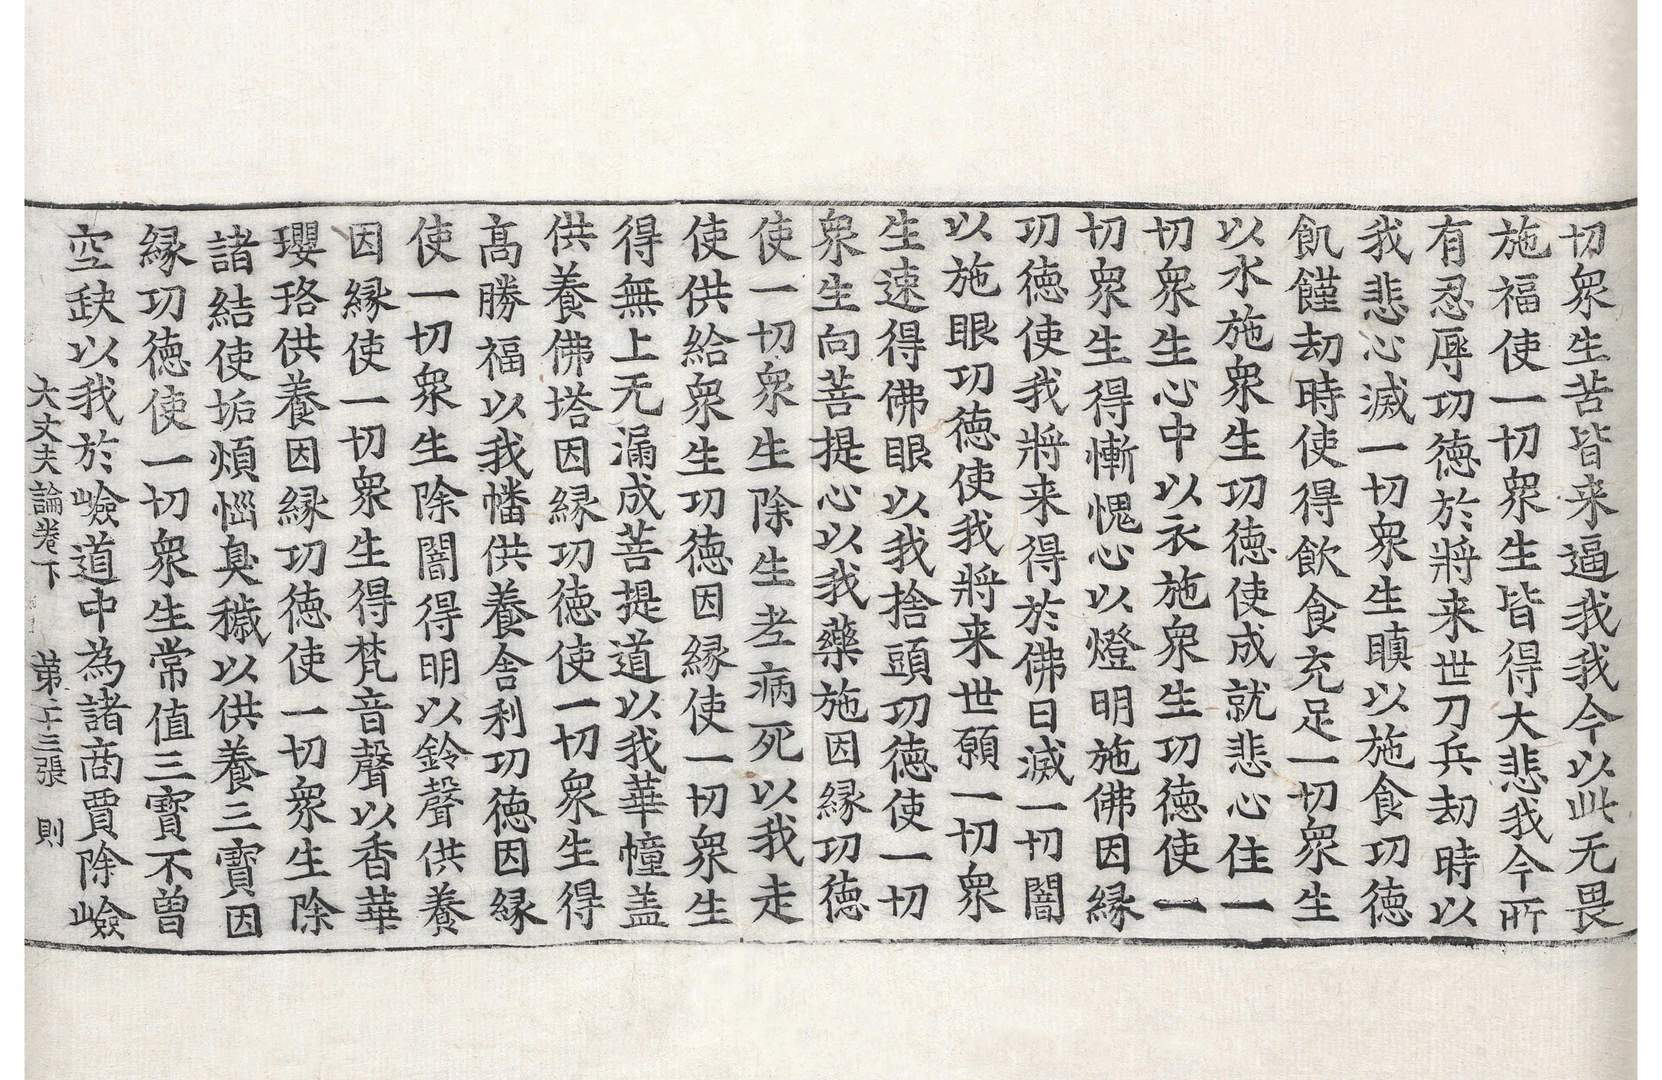 切衆生苦皆来逼我我今以此无畏
施福使一切衆生皆得大悲我今所
有忍辱功徳於將来世刀兵劫時以
我悲心滅一切衆生瞋以施食功徳
飢饉劫時使得飲食充足一切衆生
以水施衆生功徳使成就悲心住一
切衆生心中以衣施衆生功徳使一
切衆生得慚愧心以燈明施佛因縁
功徳使我將来得於佛日滅一切闇
以施眼功徳使我將来世願一切衆
生速得佛眼以我捨頭功徳使一切
衆生向菩提心以我藥施因縁功徳
使一切衆生除生老病死以我走
使供給衆生功徳因縁使一切衆生
得無上无漏成菩提道以我華幢盖
供養佛塔因縁功徳使一切衆生得
髙勝福以我幡供養舍利功徳因縁
使一切衆生除闇得明以鈴聲供養
因縁使一切衆生得梵音聲以香華
瓔珞供養因縁功徳使一切衆生除
諸結使垢煩惱臭穢以供養三寳因
縁功徳使一切衆生常值三寳不曽
空缺以我於嶮道中為諸商賈除嶮
大丈夫論卷下 第二十三張 則